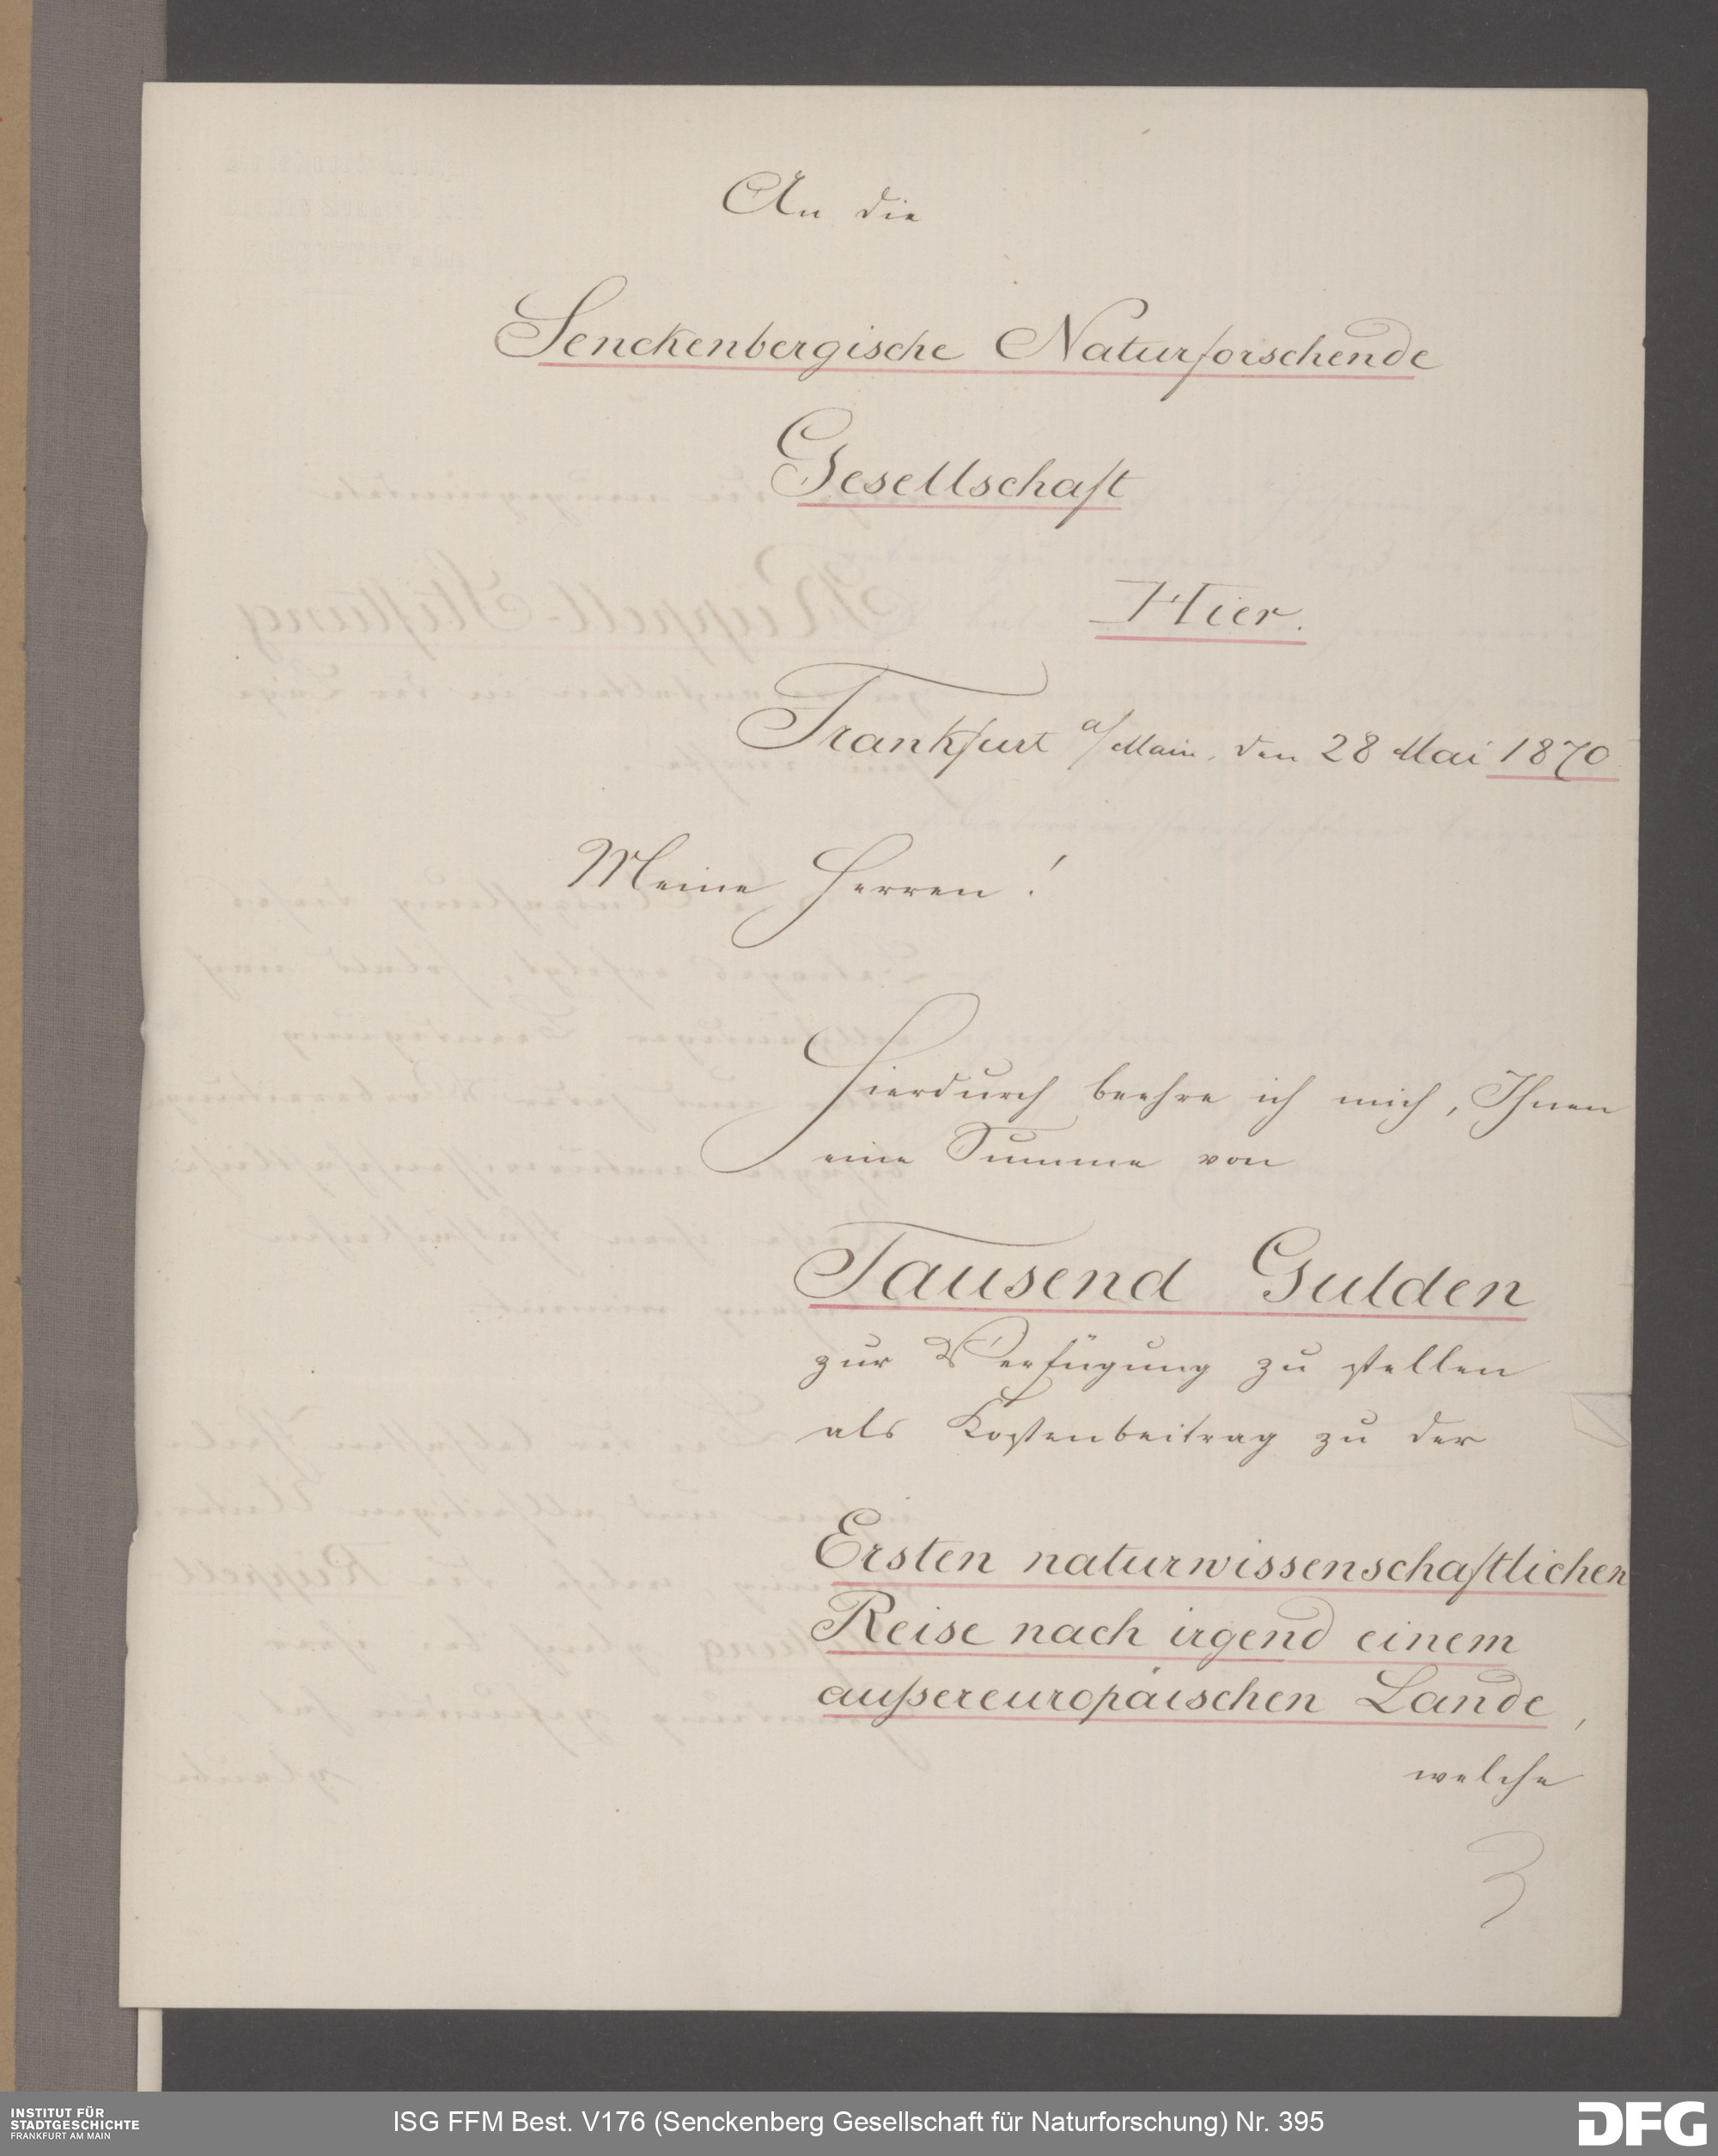 An die
Senckenbergische Naturforschende
Gesellschaft
Hier.
Frankfurt a/Main, den 28 Mai 1870
Meine Herren!
Hierdurch beehre ich mich, Ihnen
eine Summe von
Tausend Gulden
zur Verfügung zu stellen
als Kostenbeitrag zu der
Ersten naturwissenschaftlichen
Reise nach irgend einem
außereuropäischen Lande,
welche
3
INSTITUT FÜR
STADTGESCHICHTE
FRANKFURT AM MAIN
ISG FFM Best. V176 (Senckenberg Gesellschaft für Naturforschung) Nr. 395
DFG